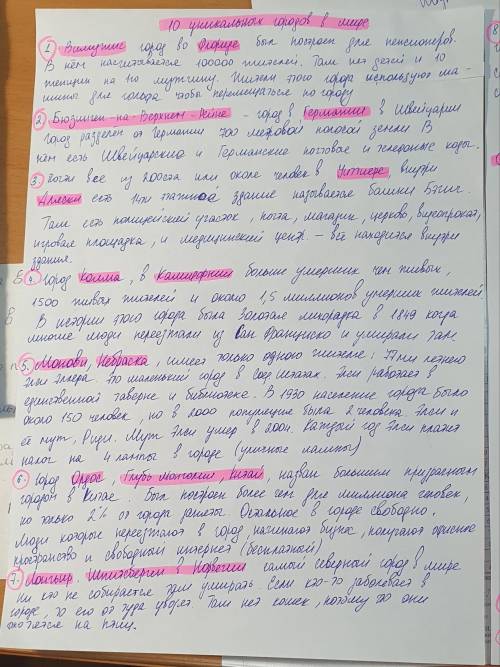 10 уникальных городов в мире
1. город во Флориде был построен для пенсионеров.
В нём насчитывается 10000 жителей. Там нет детей и 10
женщин на 1го мужчину. Жители этого города используют ма-
шины для гольфа чтобы перемещаться по городу
2. Бюзинген-на-Верхнем-Рейне - город в Германии в Швейцарии
Город разделен от Германии 700 метровой полосой земли В
нём есть Швейцарские и Германские почтовые и телефонные коды.
3. Почти все из 200ста или около человек в Уиттиере, внутри
Аляски есть 14ти этажное здание называется
Там есть полицейский участок, почта, магазин, церковь, видеопрокат,
игровая площадка, и медицинский центр. - всё находится внутри
здания.
4. Город Колма, в Калифорнии больше умерших чем живых,
1500 живых жителей и около 1,5 миллионов умерших жителей.
В истории этого города была Золотая лихорадка в 1849 когда
многие люди переезжали из Сан Франциско и умирали там.
5. Монови, Небраска, имеет только одного жителя: 77ми летнего
Элси Это маленький город в Соед штатах. Элси работает в
единственной таверне и библиотеке. В 1930 население города было
около 150 человек, но в 2000 популяция была 2 человека. Элси и
её муж, Руди. Муж Элси умер в 2004. Каждый год Элси платит
налог на 4 лампы в городе (уличные лампы)
6. Город Ордос, Китай, назван большим призрачным
городом в Китае. Был построен более чем для миллиона человек,
но только 2% от города заняты. Остальное в городе свободно.
Люди которые переезжают в город, начинают бизнес, получают офисное
пространство и свободный интернет (бесплатный)
7. Лонгьир. Шпитсберген в Норвегии самый северный город в мире
Ни кто не собирается там умирать Если кто-то заболевает в
городе, то его от туда увозят. Там нет кошек, потому что они
охотятся на птиц.